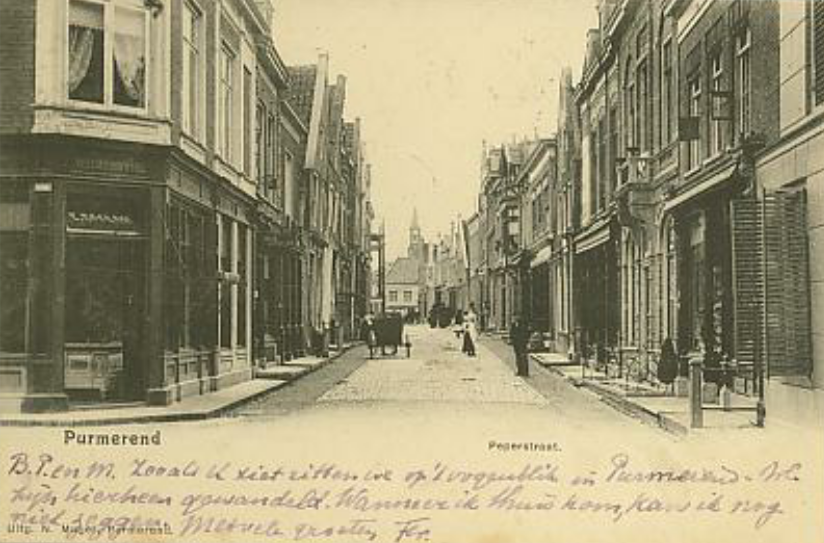 Purmerend
Peperstraat.
B. P. en M. Zooals U ziet zitten we op 't oogenblik in Purmerend. We
zijn hierheen gewandeld. Wanneer ik thuis kom, kan ik nog
niet zeggen. Met vele groeten, Fr.
Uitg. N. Purmerend.